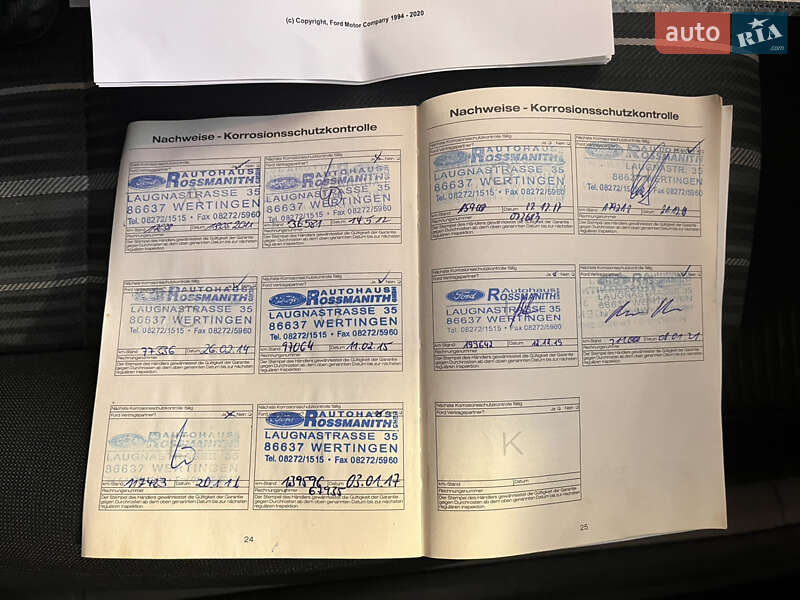 (c) Copyright, Ford Motor Company 1994 - 2020
auto RIA.com
Nachweise - Korrosionsschutzkontrolle
Nächste Korrosionsschutzkontrolle fällig
Ford Vertragspartner? Ja Nein
AUTOHAUS
ROSSMANITH
LAUGNASTRASSE 35
86637 WERTINGEN
Tel. 08272/1515 • Fax 08272/5960
km-Stand Datum
Rechnungsnummer
Der Stempel des Händlers gewährleistet die Gültigkeit der Garantie
gegen Durchrosten ab dem oben genannten Datum bis zur nächsten
regulären Inspektion.
Nächste Korrosionsschutzkontrolle fällig
Ford Vertragspartner? Ja Nein
LAUGNASTRASSE 35
86637 WERTINGEN
Tel. 08272/1515 • Fax 08272/5960
km-Stand 36581 Datum 14.5.12
Rechnungsnummer
Der Stempel des Händlers gewährleistet die Gültigkeit der Garantie
gegen Durchrosten ab dem oben genannten Datum bis zur nächsten
regulären Inspektion.
Nächste Korrosionsschutzkontrolle fällig
LAUGNASTRASSE 35
86637 WERTINGEN
Tel. 08272/1515 • Fax 08272/5960
km-Stand 77336 Datum 26.02.14
Rechnungsnummer
Der Stempel des Händlers gewährleistet die Gültigkeit der Garantie
gegen Durchrosten ab dem oben genannten Datum bis zur nächsten
regulären Inspektion.
Nächste Korrosionsschutzkontrolle fällig
Ford Vertragspartner? Ja Nein
Ford AUTOHAUS
ROSSMANITH
LAUGNASTRASSE 35
86637 WERTINGEN
Tel. 08272/1515 • Fax 08272/5960
km-Stand 97064 Datum 11.02.15
Rechnungsnummer
Der Stempel des Händlers gewährleistet die Gültigkeit der Garantie
gegen Durchrosten ab dem oben genannten Datum bis zur nächsten
regulären Inspektion.
Nächste Korrosionsschutzkontrolle fällig
Ford Vertragspartner? Ja Nein
km-Stand 117423 Datum
Rechnungsnummer
Der Stempel des Händlers gewährleistet die Gültigkeit der Garantie
gegen Durchrosten ab dem oben genannten Datum bis zur nächsten
regulären Inspektion.
Nächste Korrosionsschutzkontrolle fällig
Ford Vertragspartner? Ja Nein
Ford AUTOHAUS
ROSSMANITH
LAUGNASTRASSE 35
86637 WERTINGEN
Tel. 08272/1515 • Fax 08272/5960
km-Stand 139596 Datum 03.01.17
Rechnungsnummer 67935
Der Stempel des Händlers gewährleistet die Gültigkeit der Garantie
gegen Durchrosten ab dem oben genannten Datum bis zur nächsten
regulären Inspektion.
24
Nachweise - Korrosionsschutzkontrolle
Nächste Korrosionsschutzkontrolle fällig
Ford Vertragspartner? Ja Nein
ROSSMANITH
LAUGNASTRASSE 35
86637 WERTINGEN
Tel. 08272/1515 • Fax 08272/5960
km-Stand Datum 12.12.17
Rechnungsnummer
Der Stempel des Händlers gewährleistet die Gültigkeit der Garantie
gegen Durchrosten ab dem oben genannten Datum bis zur nächsten
regulären Inspektion.
Nächste Korrosionsschutzkontrolle fällig
Tel. 08272/1515 • Fax 08272/5960
km-Stand Datum
Rechnungsnummer
Der Stempel des Händlers gewährleistet die Gültigkeit der Garantie
gegen Durchrosten ab dem oben genannten Datum bis zur nächsten
regulären Inspektion.
Nächste Korrosionsschutzkontrolle fällig
Ford Vertragspartner? Ja Nein
Ford AUTOHAUS
ROSSMANITH
LAUGNASTRASSE 35
86637 WERTINGEN
Tel. 08272/1515 • Fax 08272/5960
km-Stand 193642 Datum 12.12.19
Rechnungsnummer
Der Stempel des Händlers gewährleistet die Gültigkeit der Garantie
gegen Durchrosten ab dem oben genannten Datum bis zur nächsten
regulären Inspektion.
Nächste Korrosionsschutzkontrolle fällig
Ford Vertragspartner? Ja Nein
km-Stand Datum 08.01.21
Rechnungsnummer
Der Stempel des Händlers gewährleistet die Gültigkeit der Garantie
gegen Durchrosten ab dem oben genannten Datum bis zur nächsten
regulären Inspektion.
Nächste Korrosionsschutzkontrolle fällig
Ford Vertragspartner? Ja Nein
K
km-Stand Datum
Rechnungsnummer
Der Stempel des Händlers gewährleistet die Gültigkeit der Garantie
gegen Durchrosten ab dem oben genannten Datum bis zur nächsten
regulären Inspektion.
25